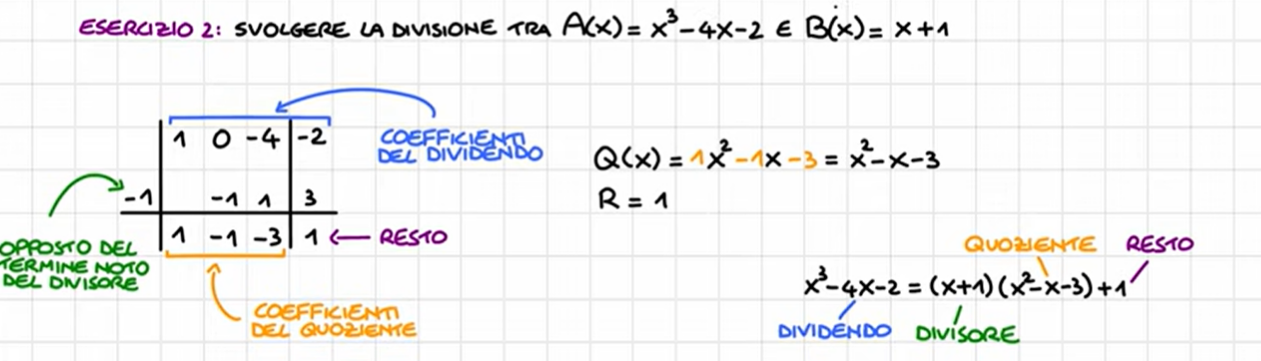 ESERCIZIO 2: SVOLGERE LA DIVISIONE TRA A(x) = x³-4x-2 E B(x) = x+1
1 0 -4 -2
COEFFICIENTI
DEL DIVIDENDO
-1 -1 1 3
1 -1 -3 1 ← RESTO
OPPOSTO DEL
TERMINE NOTO
DEL DIVISORE
COEFFICIENTI
DEL QUOZIENTE
Q(x) = 1x²-1x-3 = x²-x-3
R = 1
QUOZIENTE RESTO
x³-4x-2 = (x+1)(x²-x-3)+1
DIVIDENDO DIVISORE